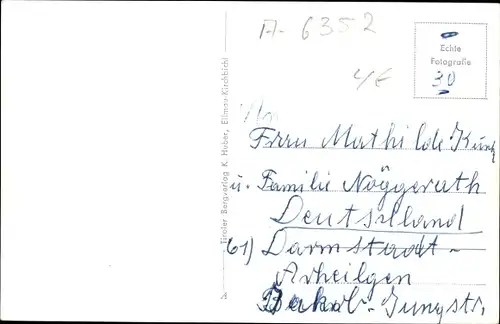 A-6352
Echte
Fotografie
30
4/E
Tiroler Bergverlag K. Haber, Ellmau-Kirchbichl
Frau Mathilde Kunz
u. Familie Nöggerath
Deutschland
61) Darmstadt-
Arheilgen
Jakob-Jungstr.